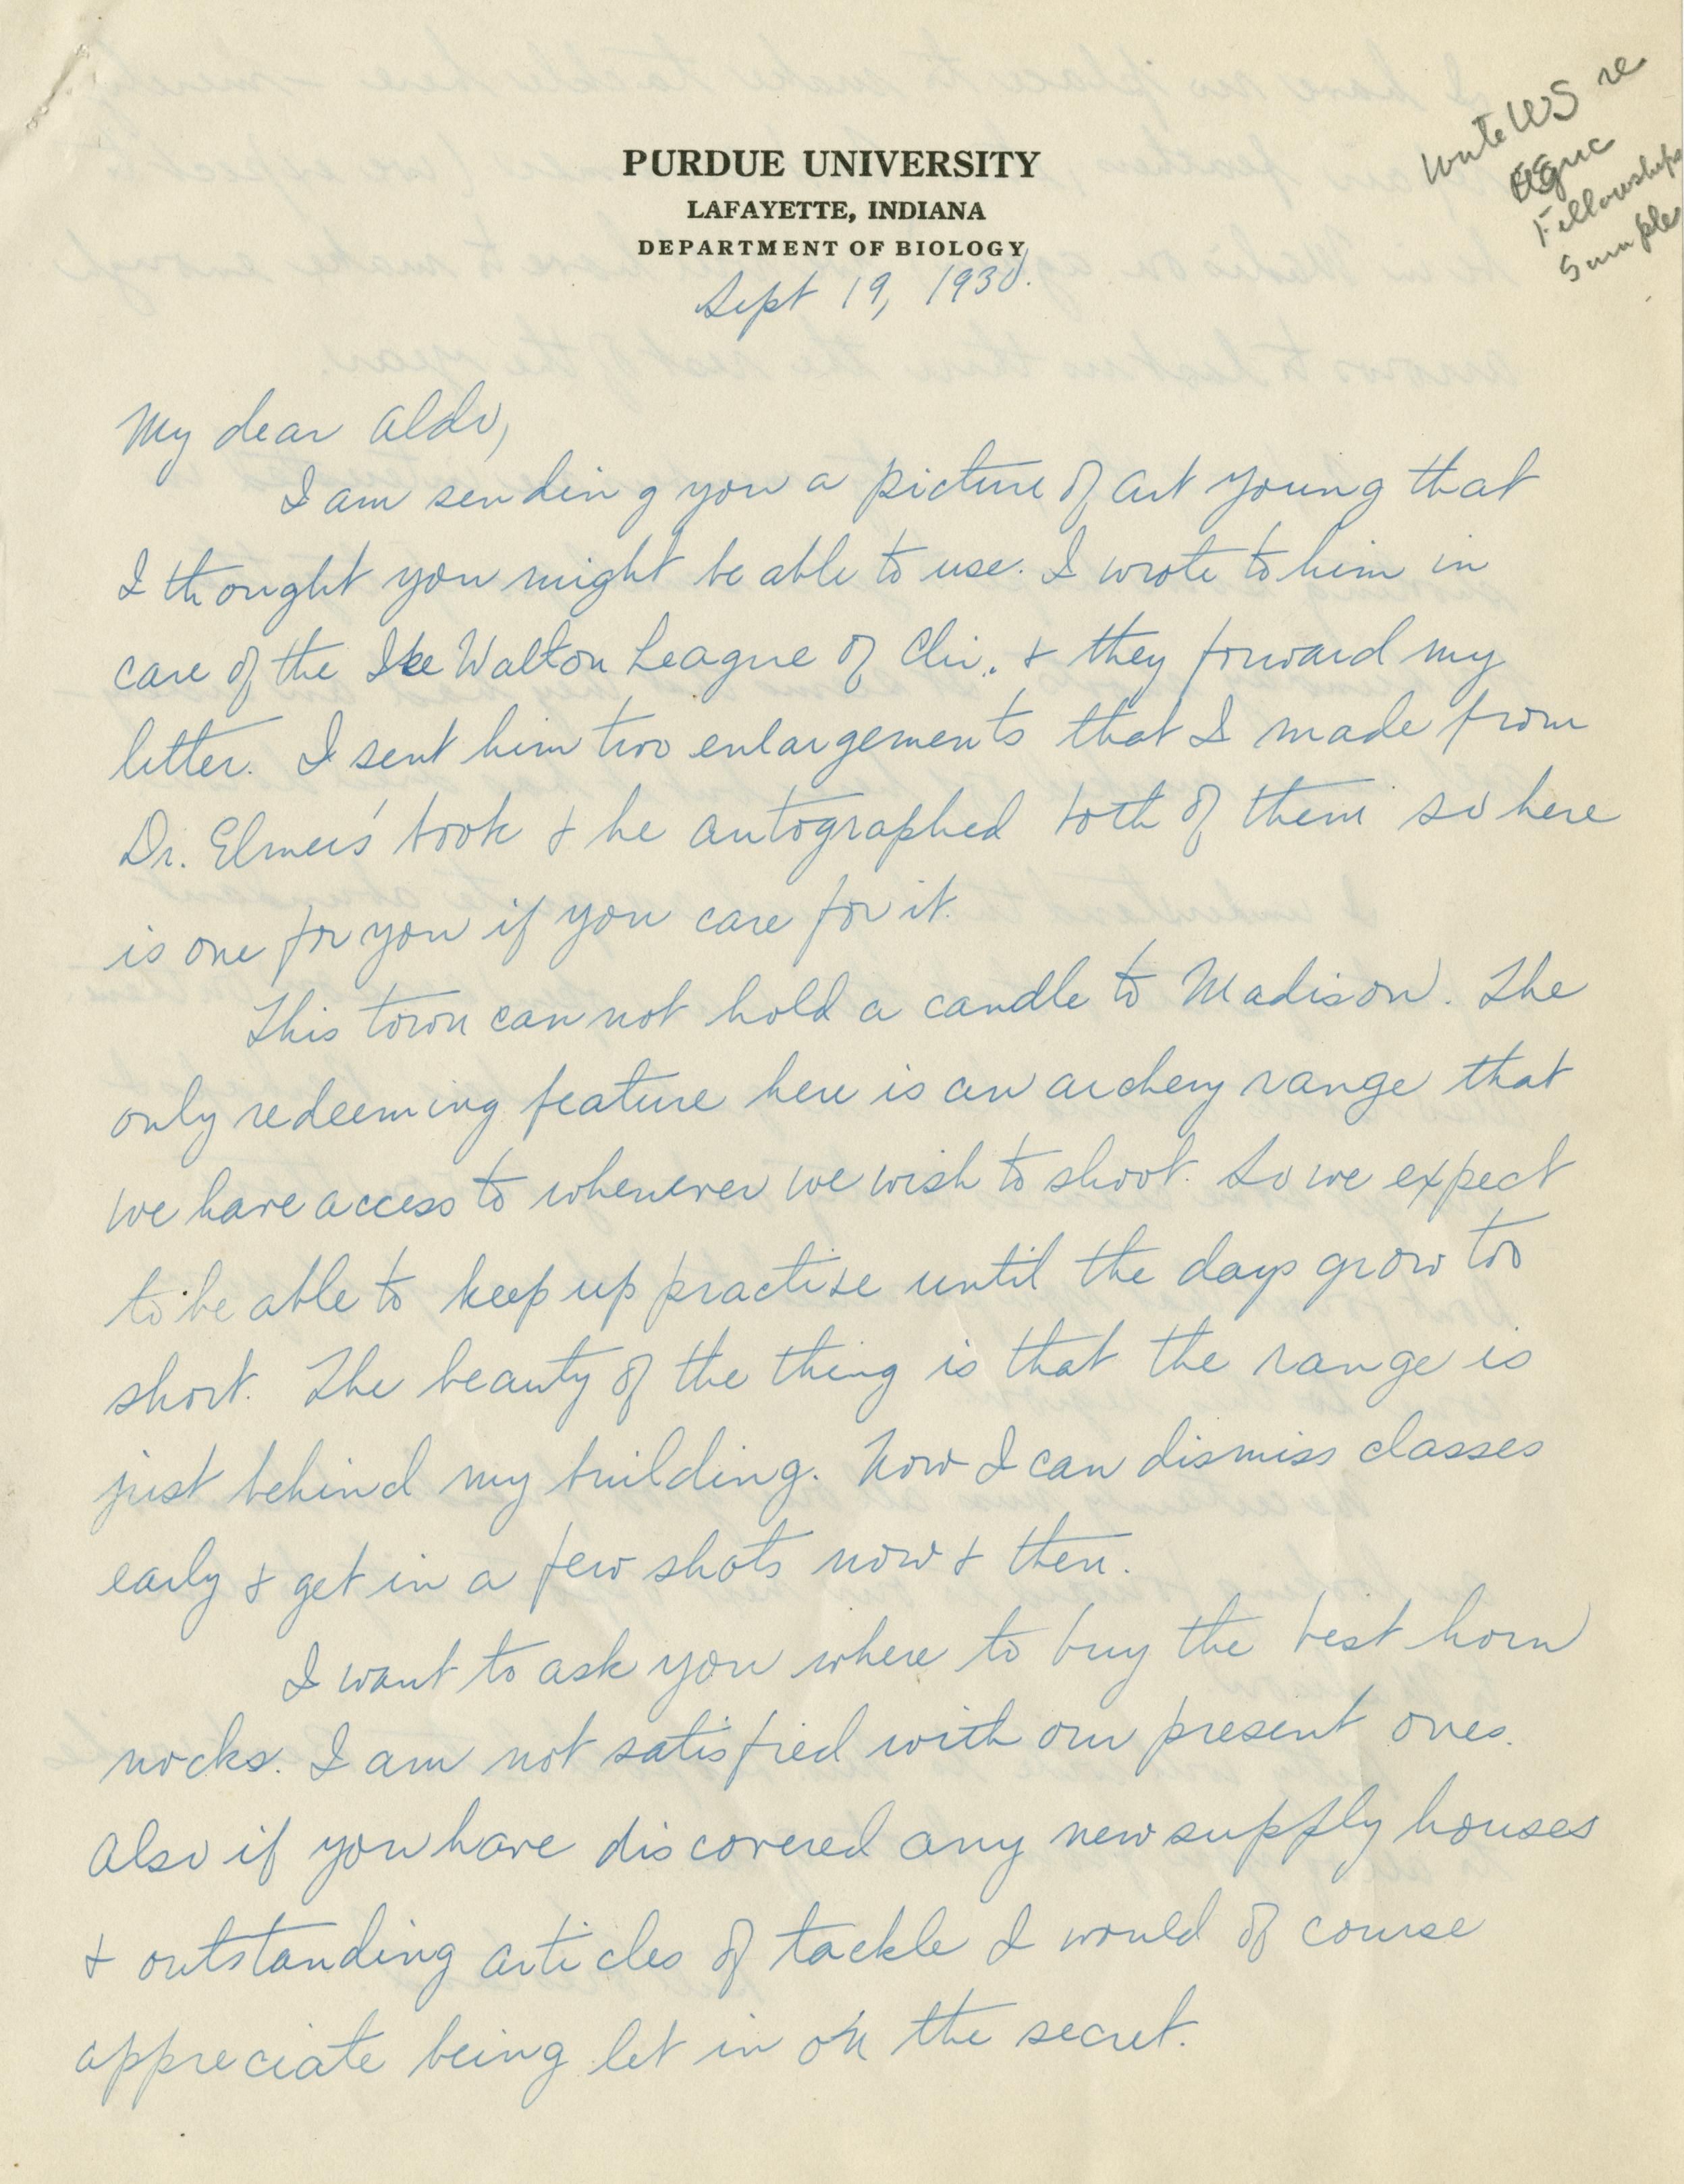 PURDUE UNIVERSITY
LAFAYETTE, INDIANA
DEPARTMENT OF BIOLOGY
Sept 19, 1930.
Write WS re
Fellowships
Sample
My dear Aldo,
I am sending you a picture of Art Young that
I thought you might be able to use. I wrote to him in
care of the Ike Walton League of Chi. & they forward my
letter. I sent him two enlargements that I made from
Dr. Elmer's book & he autographed both of them so here
is one for you if you care for it.
This town can not hold a candle to Madison. The
only redeeming feature here is an archery range that
we have access to whenever we wish to shoot. So we expect
to be able to keep up practise until the days grow too
short. The beauty of the thing is that the range is
just behind my building. Now I can dismiss classes
early & get in a few shots now & then.
I want to ask you where to buy the best horn
nocks. I am not satisfied with our present ones.
Also if you have discovered any new supply houses
& outstanding articles of tackle I would of course
appreciate being let in on the secret.